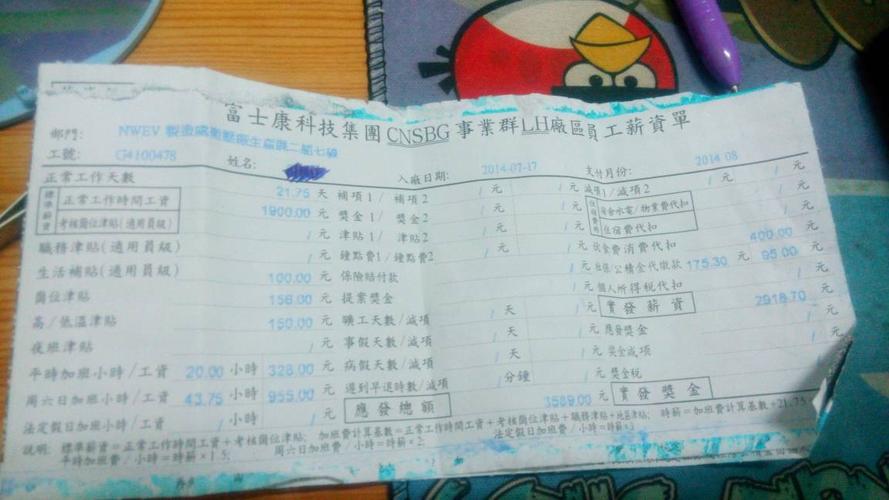 富士康科技集團 CNSBG 事業群LH廠區員工薪資單
部門: NWEV
工號: G4100478 姓名: 入廠日期: 2014-07-17 支付月份: 2014-08
正常工作天數 21.75 天 補項1/ 補項2 / 元 / 元 減項1/減項2 / / 元
標準薪資 正常工作時間工資 1900.00 元 獎金1/ 獎金2 / 元 / 元 住宿費用 宿舍水電/物業費代扣 / 元
考核崗位津貼(適用員級) / 元 津貼1/ 津貼2 / 元 / 元 住宿費代扣 / 元
職務津貼(適用員級) / 元 鐘點費1/鐘點費2 / 元 / 元 伙食費消費代扣 400.00 元
生活補貼(適用員級) 100.00 元 保險賠付款 / 元 社保/公積金代繳款 175.30 元 95.00 元
崗位津貼 156.00 元 提案獎金 / 元 個人所得稅代扣 / 元
高/低溫津貼 150.00 元 曠工天數/減項 / 天 / 元 實發薪資 2918.70 元
夜班津貼 / 元 事假天數/減項 / 天 / 元 應發獎金 / 元
平時加班小時/工資 20.00 小時 328.00 元 病假天數/減項 / 天 / 元 獎金減項 / 元
周六日加班小時/工資 43.75 小時 955.00 元 遲到早退時數/減項 / 分鐘 / 元 獎金稅 / 元
法定假日加班小時/工資 / 小時 / 元 應發總額 3589.00 元 實發獎金 / 元
說明: 標準薪資=正常工作時間工資+考核崗位津貼; 加班費計算基數=標準薪資+考核崗位津貼+職務津貼+地區津貼; 時薪=加班費計算基數÷21.75
平時加班費/小時=時薪×1.5; 周六日加班費/小時=時薪×2; 法定假日加班費/小時=時薪×3